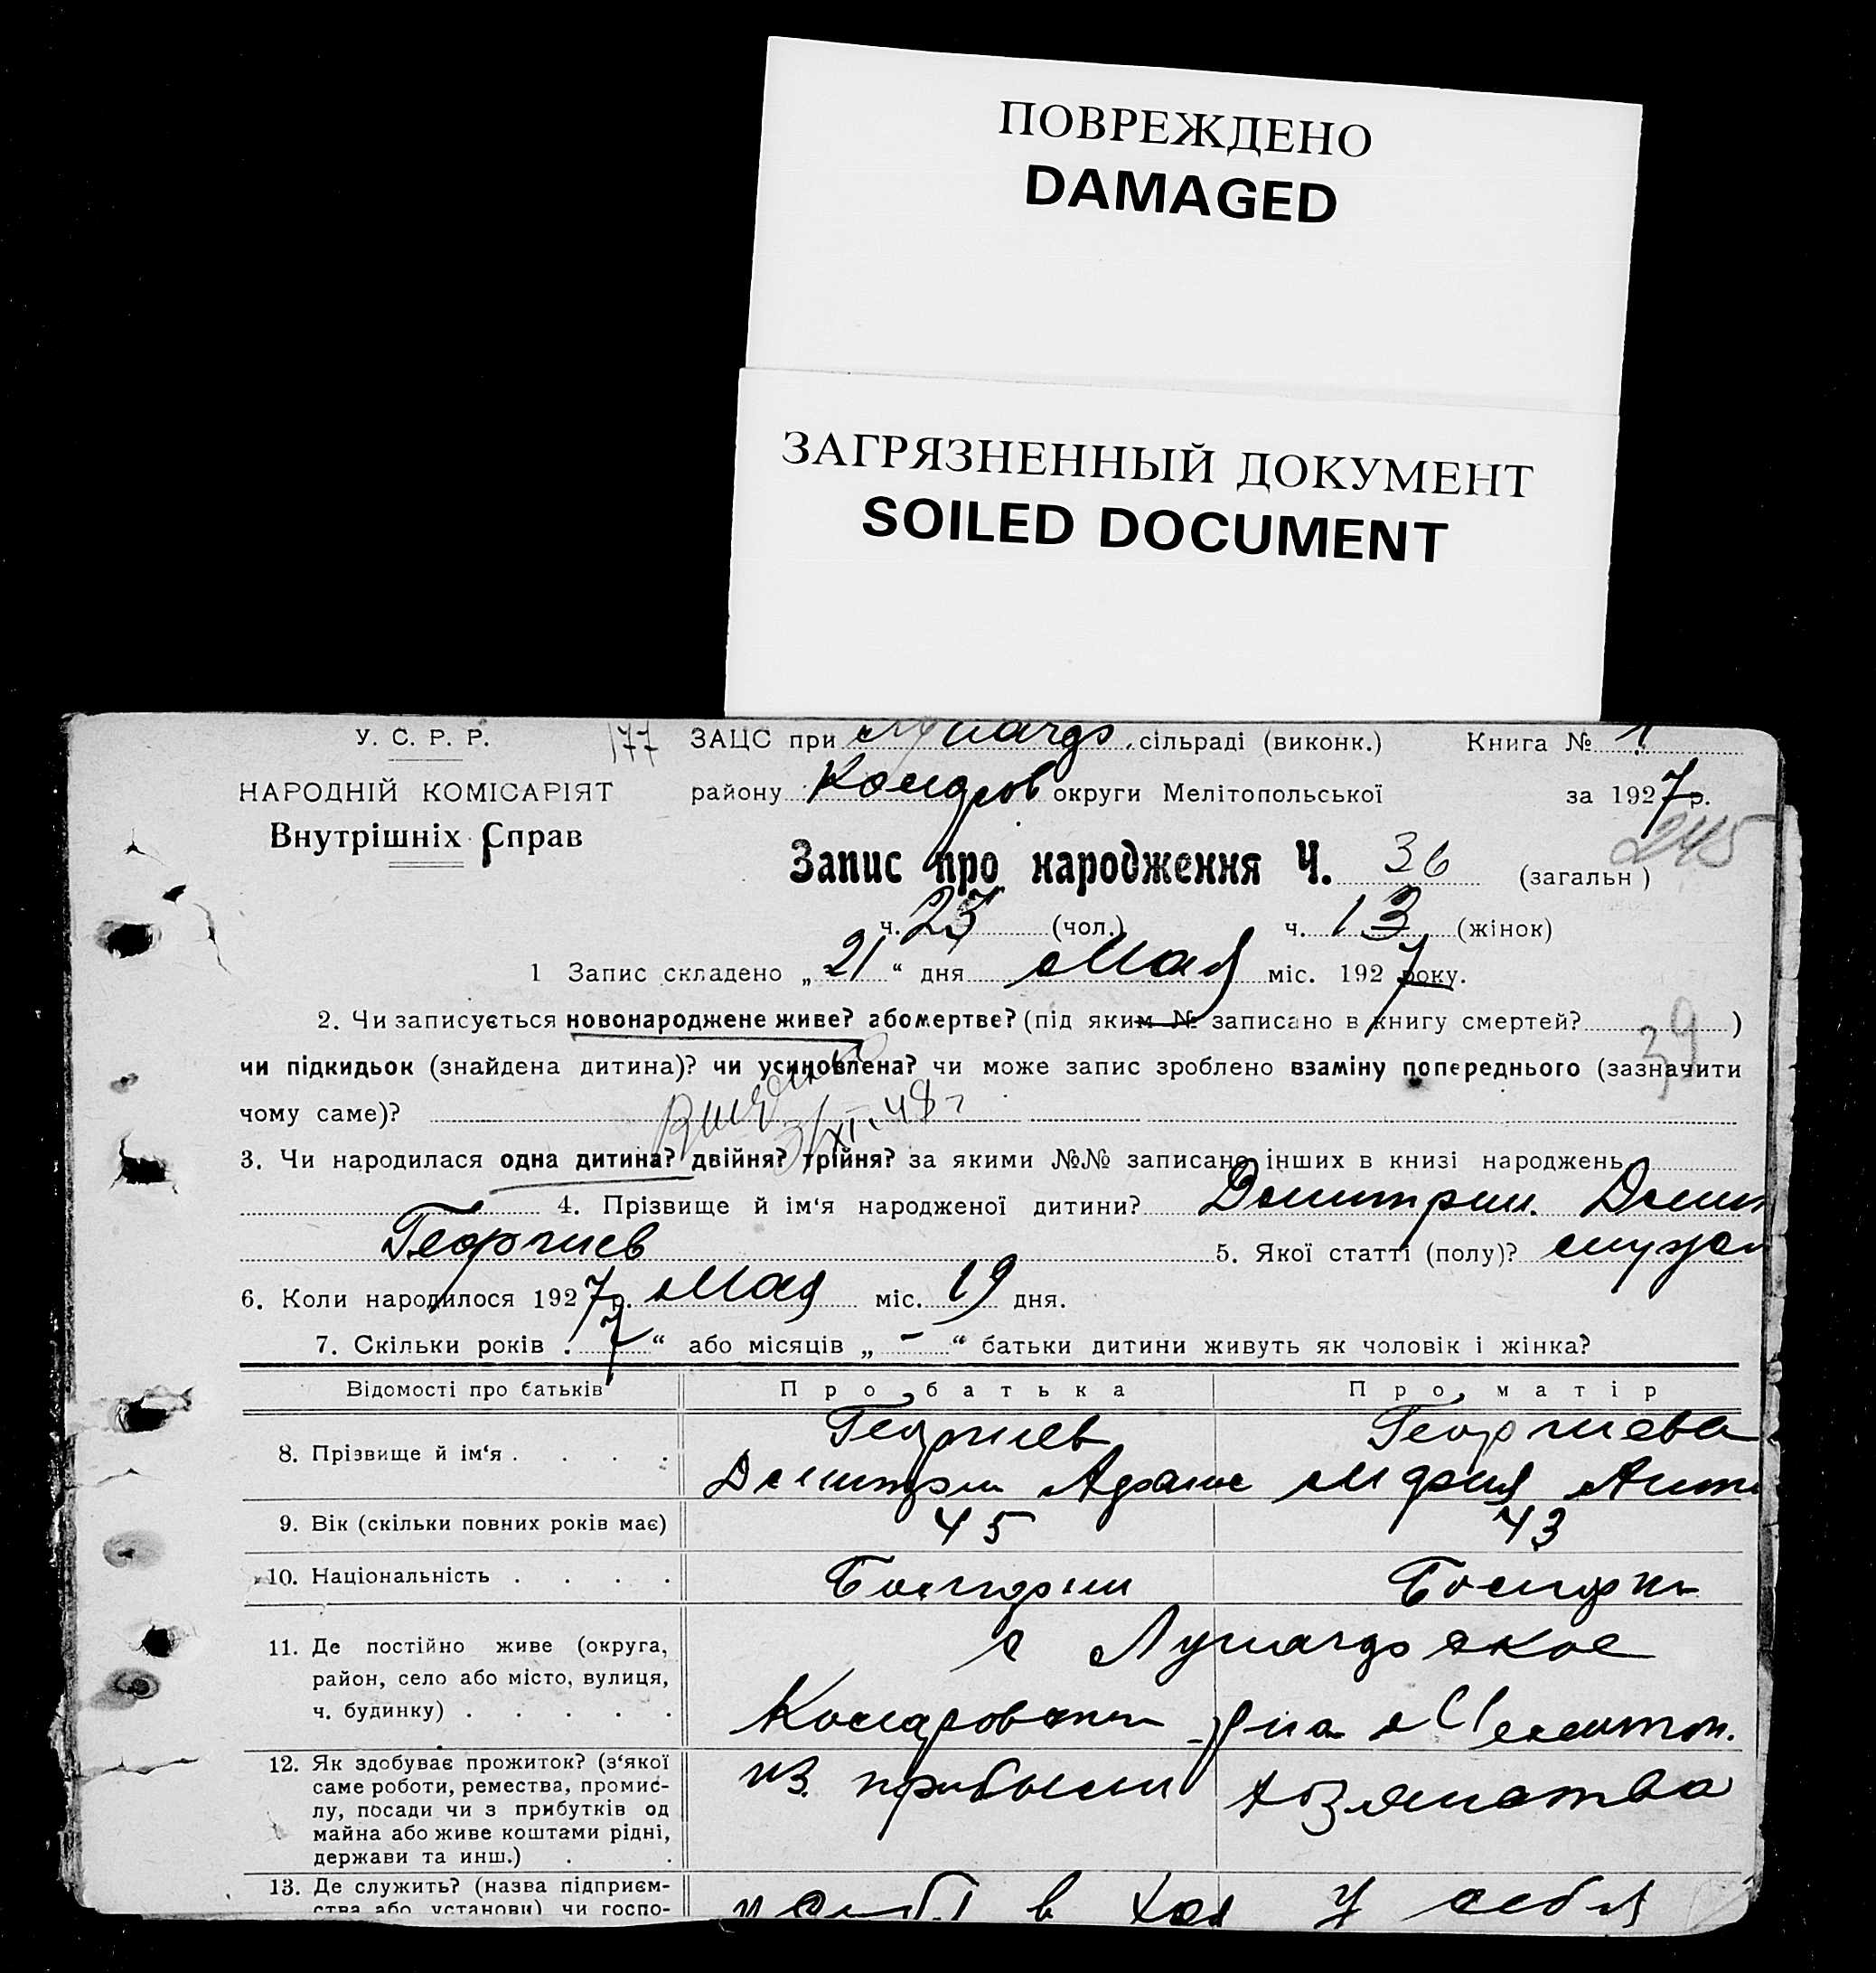 ПОВРЕЖДЕНО
DAMAGED
ЗАГРЯЗНЕННЫЙ ДОКУМЕНТ
SOILED DOCUMENT
У. С. Р. Р. 177 ЗАЦС при сільраді (виконк.) Книга № 1
НАРОДНІЙ КОМІСАРІЯТ району округи Мелітопольської за 1927 р.
Внутрішніх Справ
245
Запис про народження Ч. 36 (загальн)
ч. 23 (чол.) ч. 13 (жінок)
1 Запис складено „21“ дня Мая міс. 1927 року.
2. Чи записується новонароджене живе? або мертве? (під яким № записано в книгу смертей? )
39
чи підкидьок (знайдена дитина)? чи усиновлена? чи може запис зроблено взаміну попереднього (зазначити
чому саме)? XI. 48 г
3. Чи народилася одна дитина? двійня? трійня? за якими №№ записано інших в книзі народжень
4. Прізвище й ім‘я народженої дитини? Дмитрии Дмит
Георгиев 5. Якої статті (полу)? мужс
6. Коли народилося 1927 р. Мая міс. 19 дня.
7. Скільки років „7“ або місяців „-“ батьки дитини живуть як чоловік і жінка?
Відомості про батьків Про батька Про матір
8. Прізвище й ім‘я . . . . Георгиев Георгиева
Дмитрии Мария
9. Вік (скільки повних років має) 45 43
10. Національність . . . .
11. Де постійно живе (округа,
район, село або місто, вулиця,
ч. будинку) . . . . .
12. Як здобуває прожиток? (з‘якої
саме роботи, ремества, промис-
лу, посади чи з прибутків од
майна або живе коштами рідні,
держави та инш.) . .
из прибыли хозяиства
13. Де служить? (назва підприєм-
ства або установи) чи госпо-
в хоз у себя